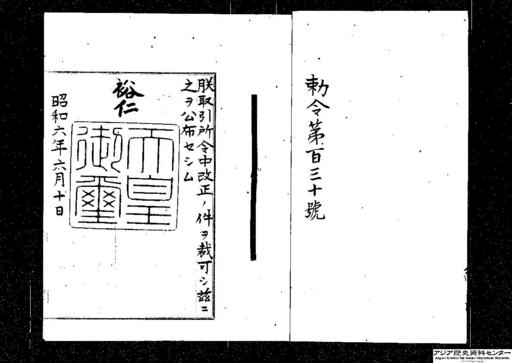 勅令第百三十號
朕取引所令中改正ノ件ヲ裁可シ茲ニ
之ヲ公布セシム
裕仁
天皇
御璽
昭和六年六月十日
アジア歴史資料センター
Japan Center for Asian Historical Records